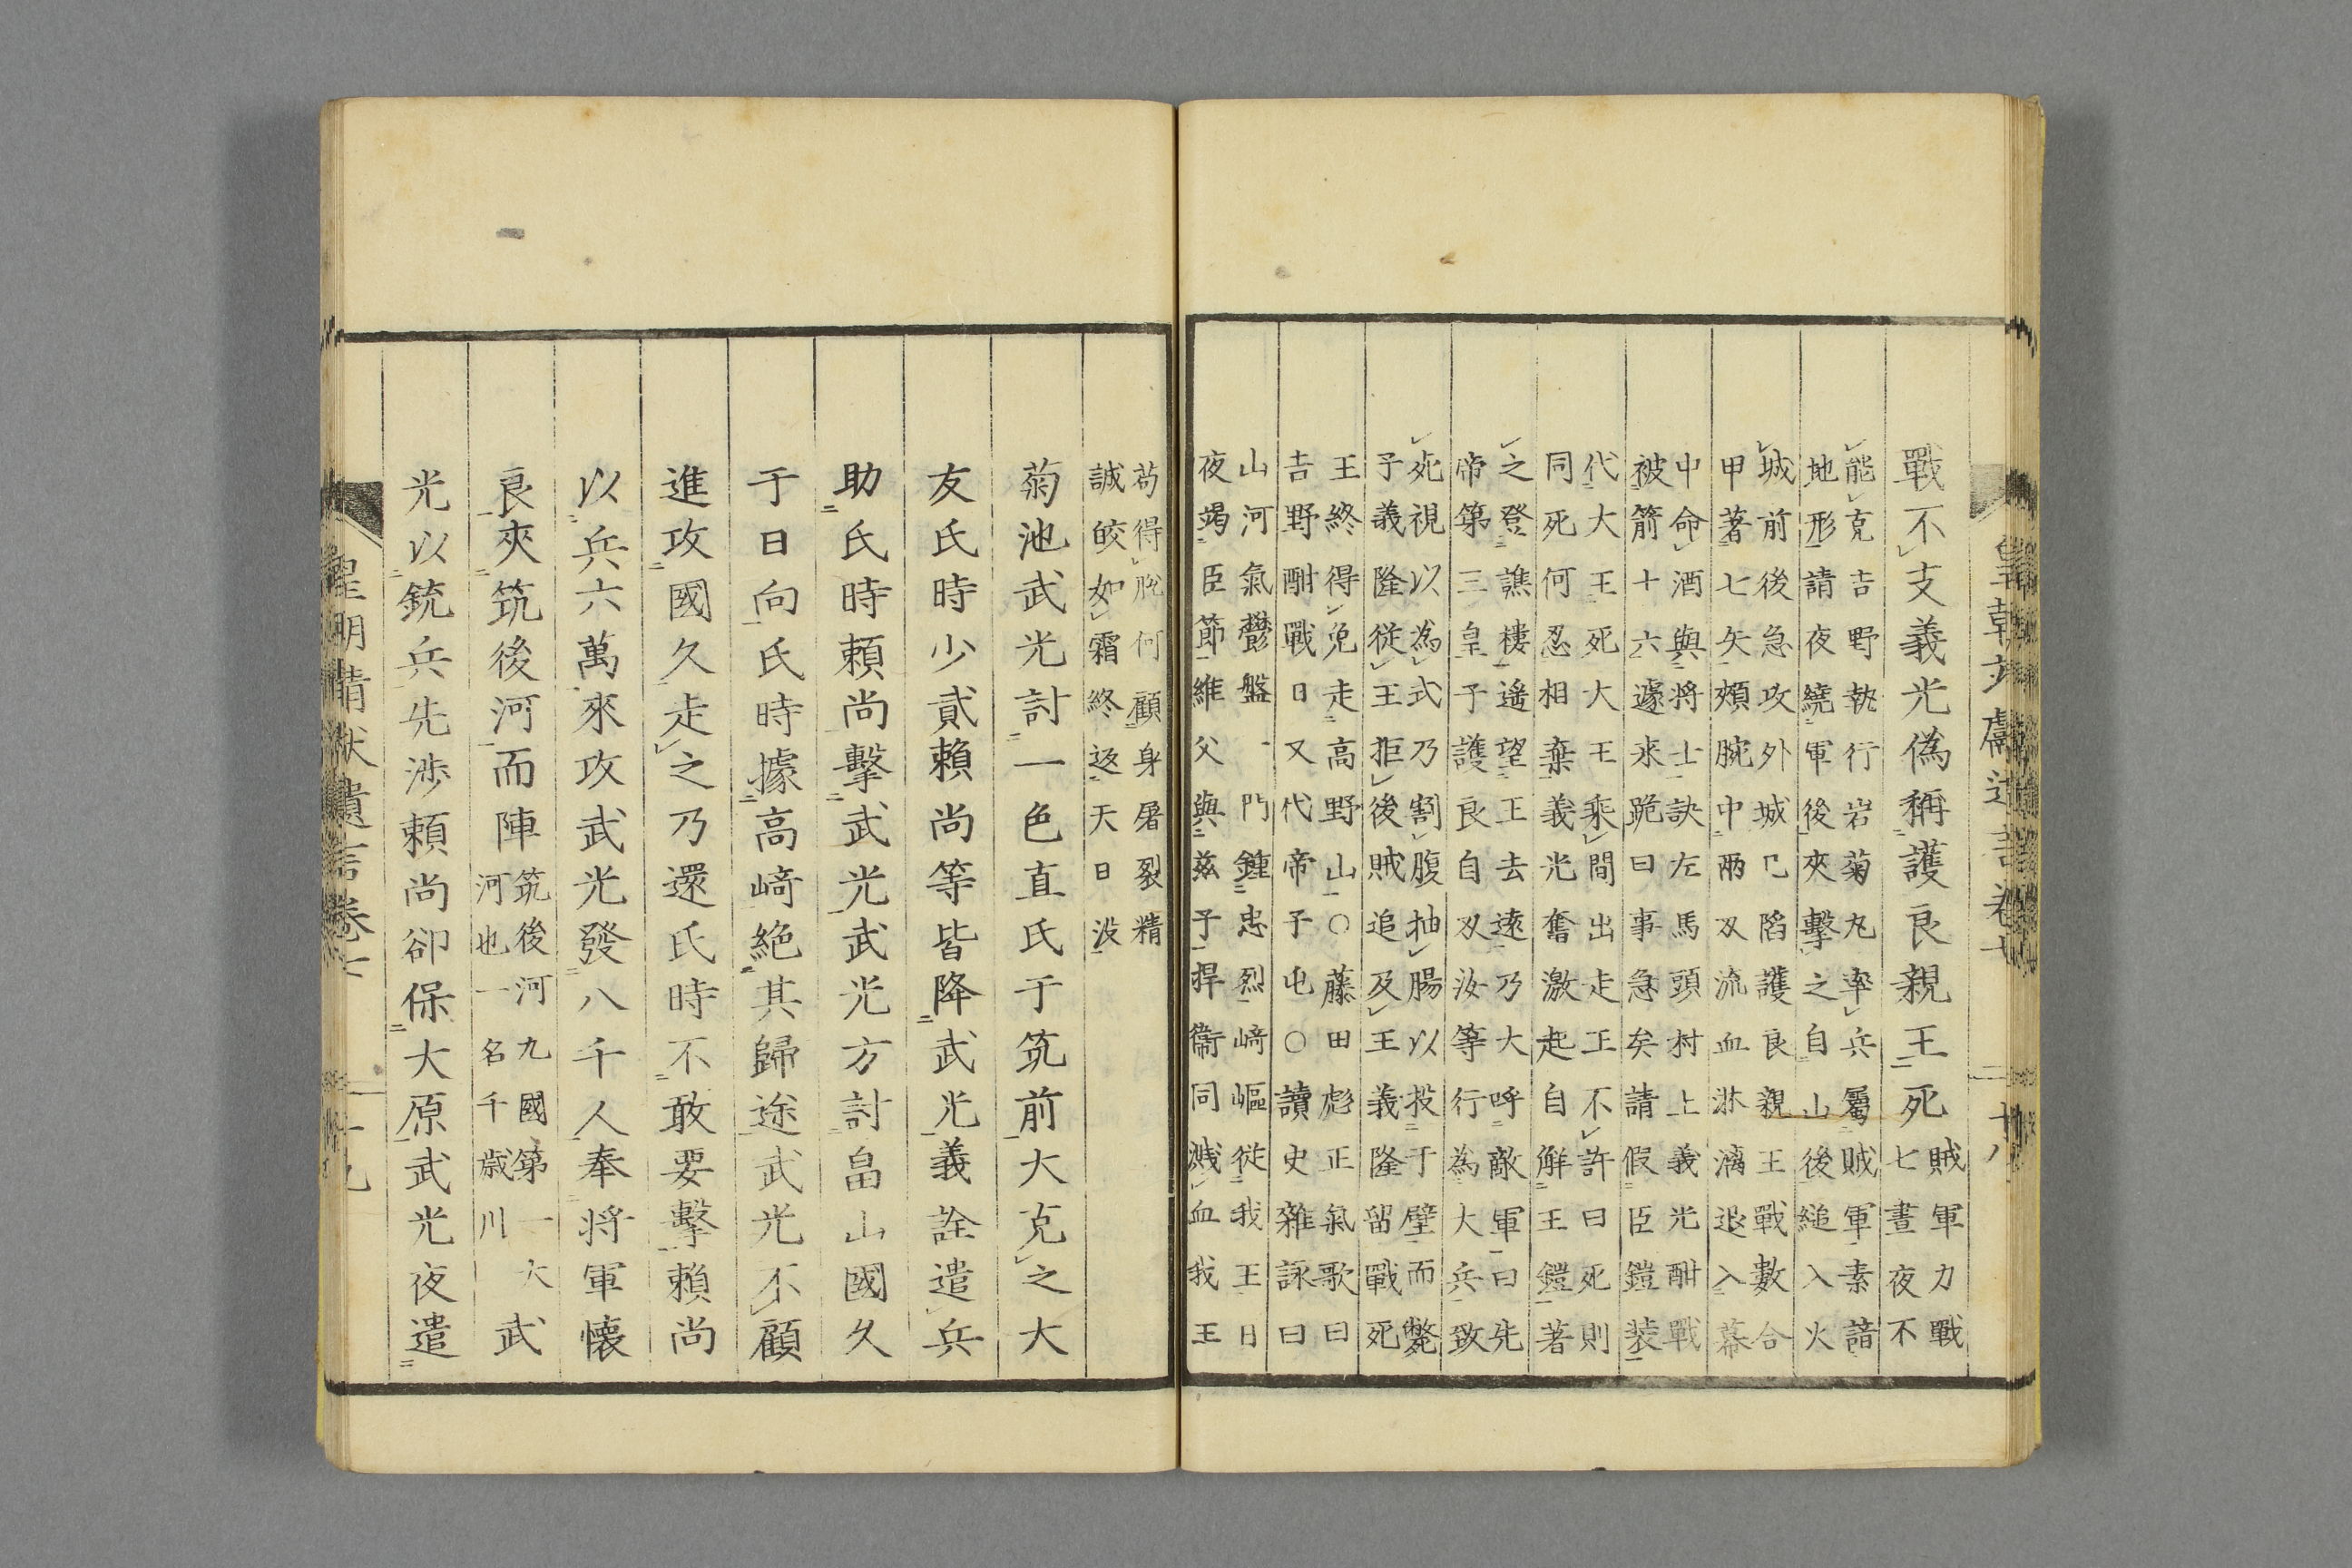 皇朝靖獻遺言卷七 十八
戰不支義光偽稱護良親王死
賊軍力戰
七晝夜不
能克吉野執行岩菊丸率兵屬賊軍素諳
地形請夜繞軍後夾擊之自山後縋入火
城前後急攻外城已陷護良親王戰數合
甲著七矢頰腕中兩刄流血淋漓退入幕
中命酒與将士訣左馬頭村上義光酣戰
被箭十六遽来跪曰事急矣請假臣鎧装
代大王死大王乘間出走王不許曰死則
同死何忍相棄義光奮激起自觧王鎧著
之登譙樓遙望王去遠乃大呼敵軍曰先
帝第三皇子護良自刄汝等行為大兵致
死視以為式乃割腹抽腸以投于壁而斃
子義隆從王拒後賊追及王義隆留戰死
王終得免走高野山○藤田彪正氣歌曰
吉野酣戰日又代帝子屯○讀史雜詠曰
山河氣鬱盤一門鍾忠烈﨑嶇從我王日
夜竭臣節維父與兹子捍衞同濺血我王
苟得脱何顧身屠裂精
誠皎如霜終返天日没
菊池武光討一色直氏于筑前大克之大
友氏時少貳賴尚等皆降武光義詮遣兵
助氏時賴尚擊武光武光方討畠山國久
于日向氏時據高﨑絶其歸途武光不顧
進攻國久走之乃還氏時不敢要擊賴尚
以兵六萬來攻武光發八千人奉将軍懷
良夾筑後河而陣
筑後河九國第一大
河也一名千歳川
武
光以銃兵先渉賴尚卻保大原武光夜遣
皇朝靖献遺言卷七 十九